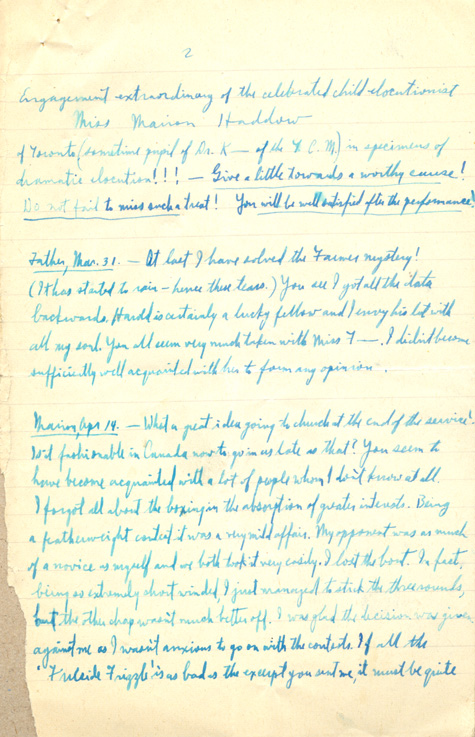 2
Engagement extraordinary of the celebrated child elocutionist
Miss Mairon Haddow
of Toronto (sometime pupil of Dr. K— of the T. C. M.) in specimens of
dramatic elocution!!! — Give a little towards a worthy cause!
Do not fail to miss such a treat! You will be well satisfied after the performance!
Father, Mar. 31. — At last I have solved the Farmer mystery!
(It has started to rain – hence these tears.) You see I got all the data
backwards. Harold is certainly a lucky fellow and I envy his lot with
all my soul. You all seem very much taken with Miss T—. I didn't become
sufficiently well acquainted with her to form any opinion.
Mairon, Apr 14. — What a great idea going to church at the end of the service!
Is it fashionable in Canada now to go in as late as that? You seem to
have become acquainted with a lot of people whom I don't know at all.
I forgot all about the boxing in the absorption of greater interests. Being
a featherweight contest it was a very mild affair. My opponent was as much
of a novice as myself and we both took it very easily. I lost the bout. In fact,
being so extremely short winded, I just managed to stick the three rounds,
but the other chap wasn't much better off. I was glad the decision was given
against me as I wasn't anxious to go on with the contests. If all the
'Fireside Frizzle' is as bad as the excerpt you sent me, it must be quite